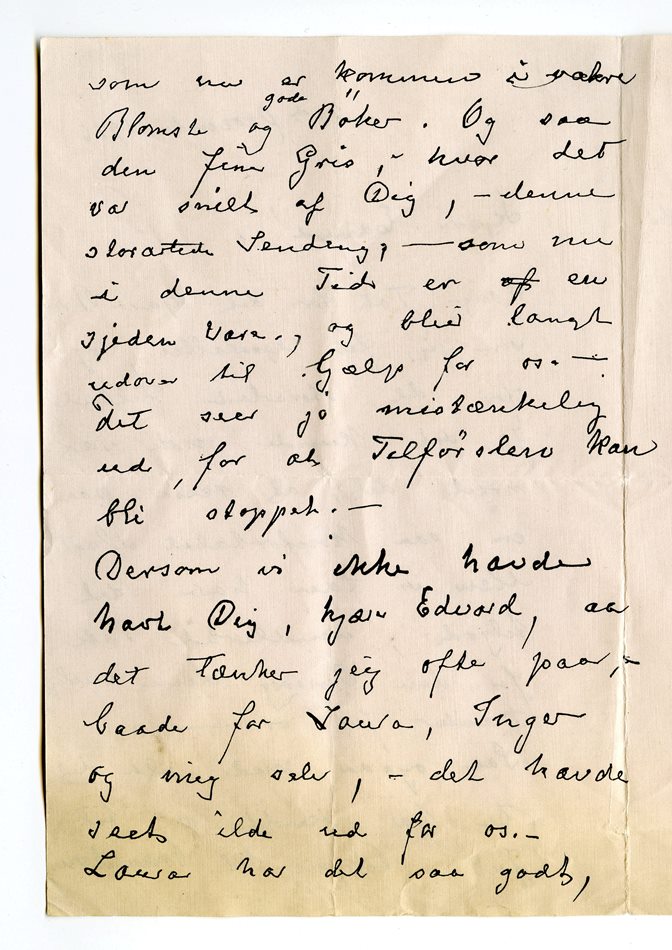 som nu er kommen i vakre
Blomster og gode Böker. Og saa
den fine Gris, - hvor det
var snilt af Dig, - denne
storartede Sending, - som nu
i denne Tid er en
sjeden Vare -, og blier langt
udover til Hjælp for os. -
Det seer jo mistænkelig
ud, for at Tilförslen kan
bli stoppet. -
Dersom vi ikke havde
havt Dig, kjære Edvard, aa
det tænker jeg ofte paa, -
baade for Laura, Inger
og mig selv, - det havde
seet ilde ud for os. -
Laura har det saa godt,